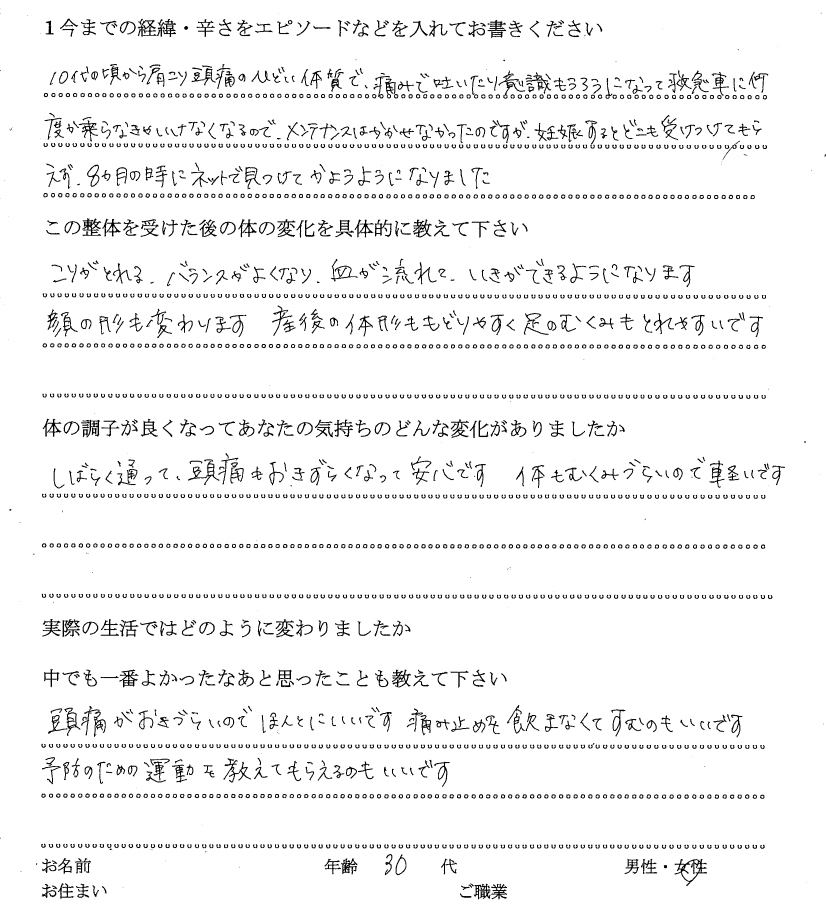 1今までの経緯・辛さをエピソードなどを入れてお書きください
10代の頃から肩こり頭痛のひどい体質で、痛みで吐いたり意識もうろうになって救急車に何
度か乗らなきゃいけなくなるので、メンテナンスはかかせなかったのですが、妊娠するとどこも受けつけてもら
えず、8ヵ月の時にネットで見つけてかようようになりました
この整体を受けた後の体の変化を具体的に教えて下さい
こりがとれる、バランスがよくなり、血が流れて、いきができるようになります
顔の形も変わります 産後の体形ももどりやすく足のむくみもとれやすいです
体の調子が良くなってあなたの気持ちのどんな変化がありましたか
しばらく通って、頭痛もおきずらくなって安心です 体もむくみづらいので軽いです
実際の生活ではどのように変わりましたか
中でも一番よかったなあと思ったことも教えて下さい
頭痛がおきづらいのでほんとにいいです 痛み止めを飲まなくてすむのもいいです
予防のための運動を教えてもらえるのもいいです
お名前 年齢 30 代 男性・女性
お住まい ご職業